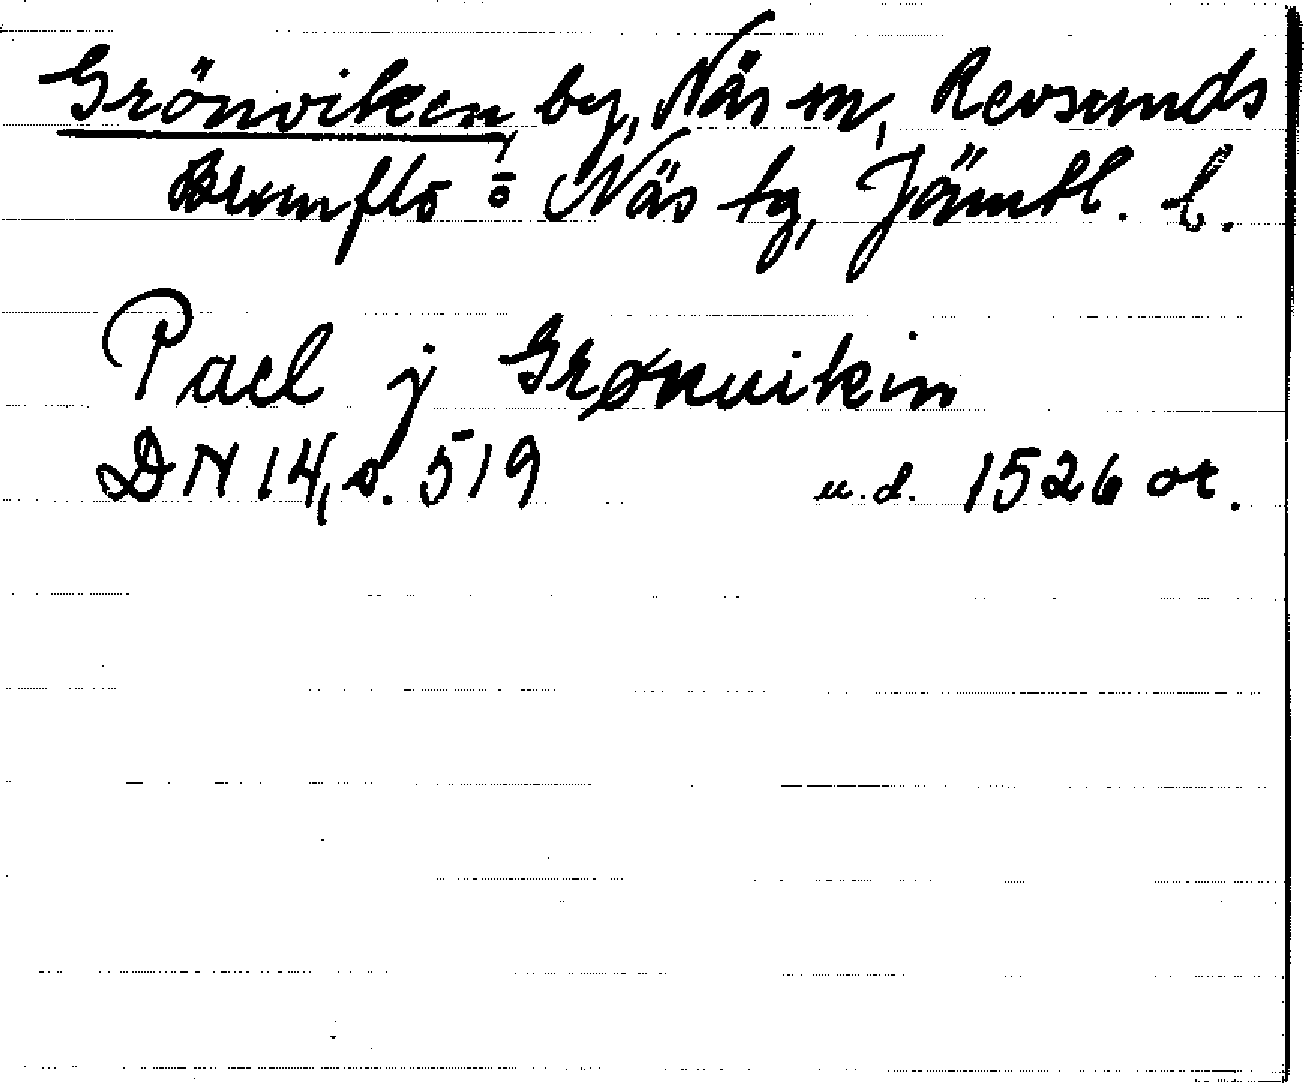 Grönviken, by, Näs sn, Revsunds
Brunflo o Näs tg, Jämtl. l.
Pael j Grønuikin
DN 14, s. 519 u.d. 1526 or.